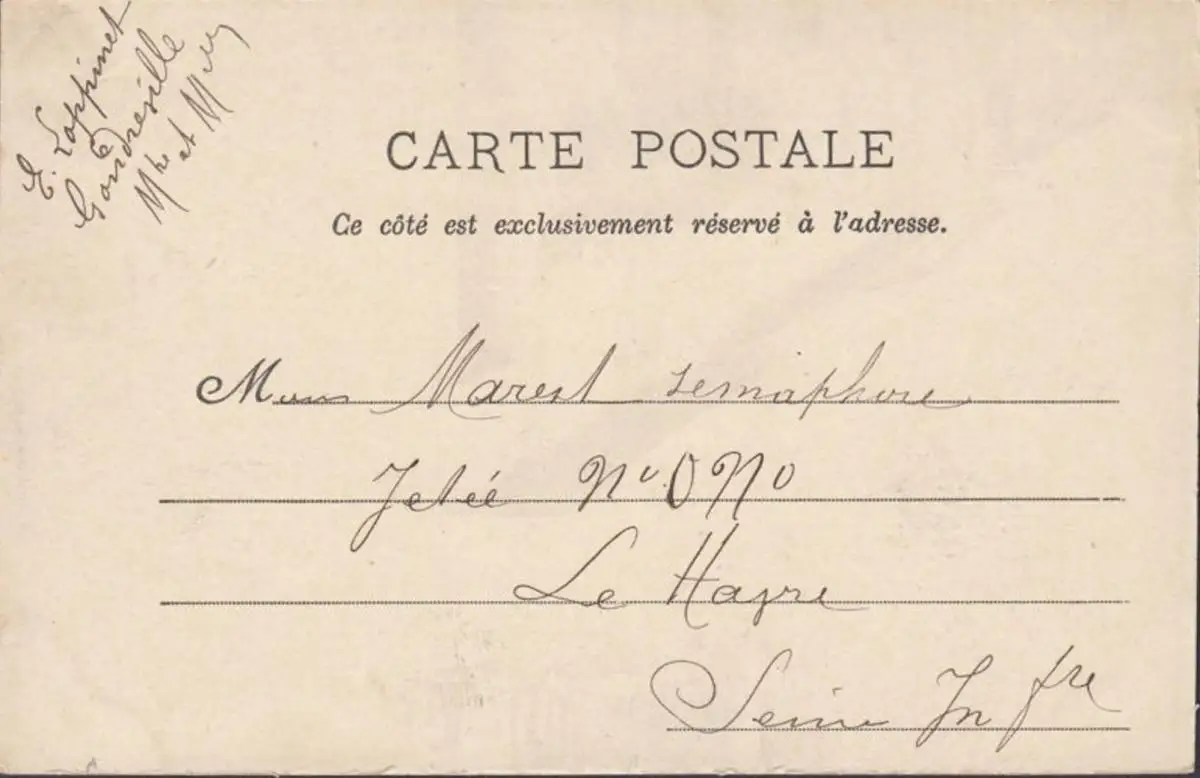 E. Lappinet
Gondreville
Mthe et Mlle
CARTE POSTALE
Ce côté est exclusivement réservé à l'adresse.
Marest semaphore
Jetée
Le Havre
Seine Infre